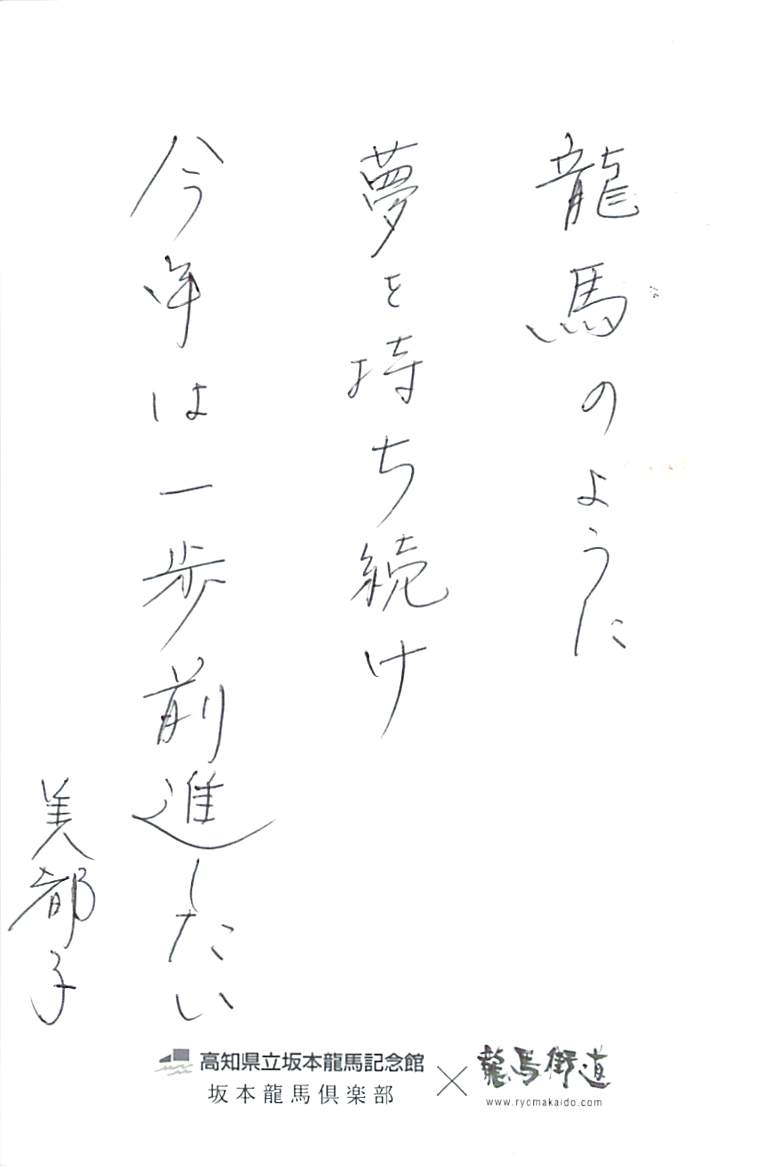 龍馬のように
夢を持ち続け
今年は一歩前進したい
美都子
高知県立坂本龍馬記念館
坂本龍馬倶楽部
×
龍馬街道
www.ryomakaido.com